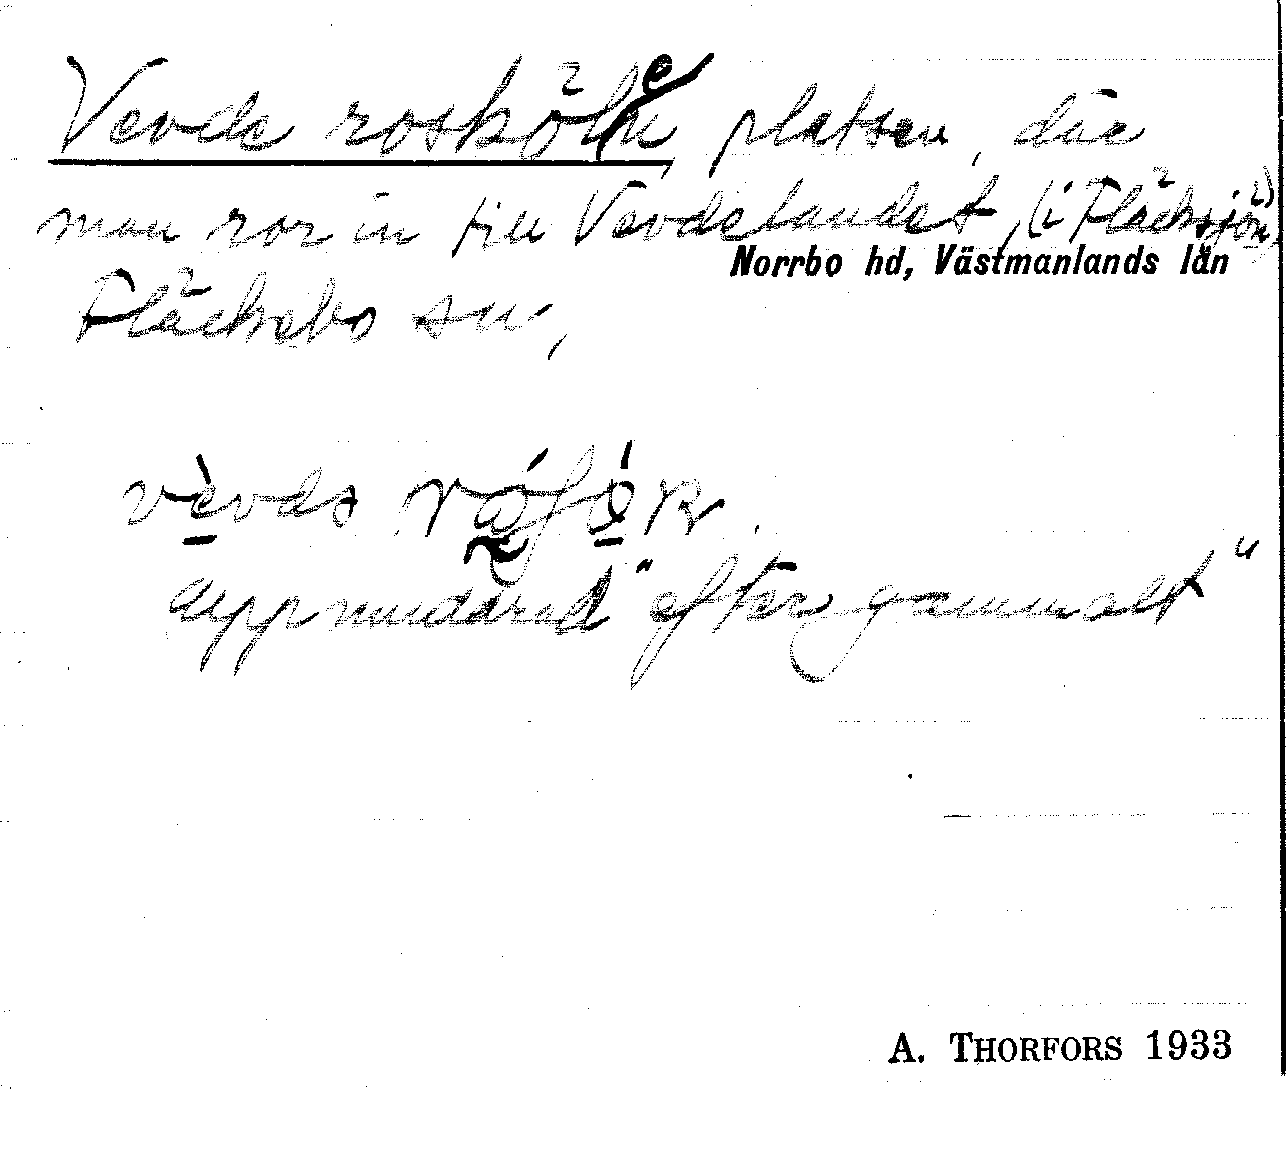 Vevde rosköle platsen, där
man ror in till Vevdelandet, (i Fläcksjön)
Norrbo hd, Västmanlands län
Fläckebo sn,
uppmudd­rad "efter gammalt"
A. THORFORS 1933